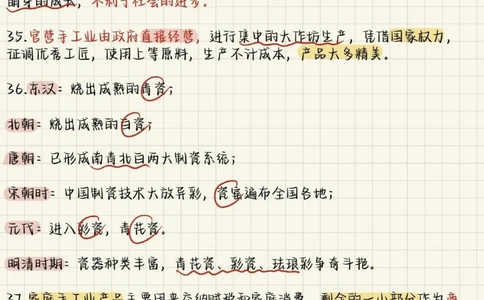 萌芽的成长，不利于社会的进步。
35.官营手工业由政府直接经营，进行集中的大作坊生产，凭借国家权力，
征调优秀工匠，使用上等原料，生产不计成本，产品大多精美。
36.东汉：烧出成熟的青瓷；
北朝：烧出成熟的白瓷；
唐朝：已形成南青北白两大制瓷系统；
宋朝时：中国制瓷技术大放异彩，瓷窑遍布全国各地；
元代：进入彩瓷，青花瓷。
明清时期：瓷器种类丰富，青花瓷、彩瓷、珐琅彩争奇斗艳。
37.家庭手工业产品主要用来交纳赋税和家庭消费，剩余的一小部分作为商